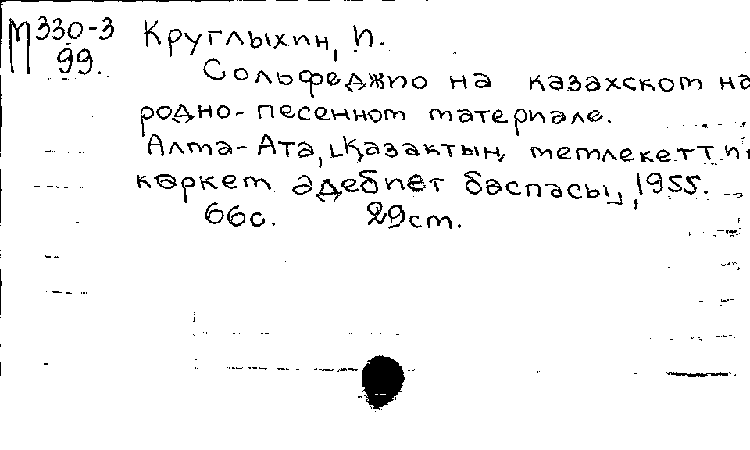 М330-3 Круглыхин, И.
99.
Сольфеджио на казахском на
родно-песенном материале.
Алма-Ата, Қазақтың мемлекетт и
көркем әдебиет баспасы, 1955.
66с. 29см.